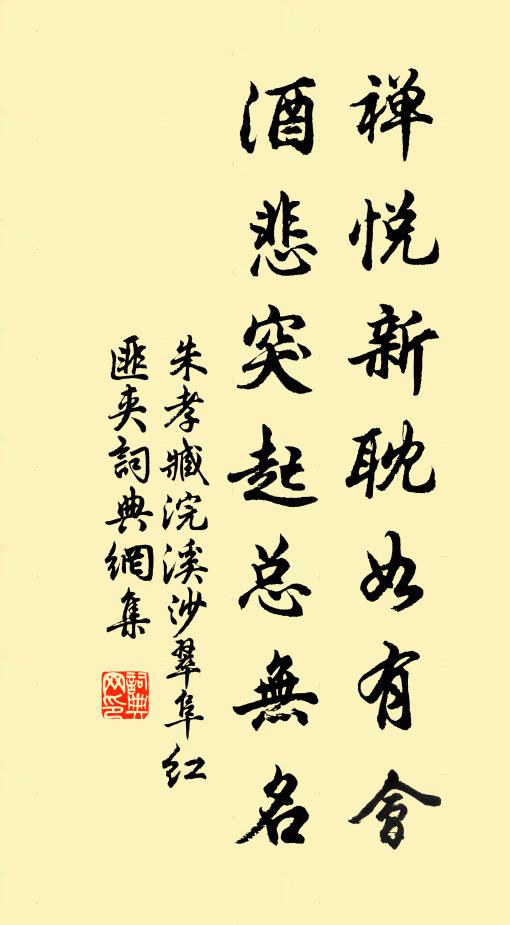 禅悦新耽如有會
酒悲突起总無名
朱孝臧浣溪沙翠阜红
匪夾詞典網集
詞典网印